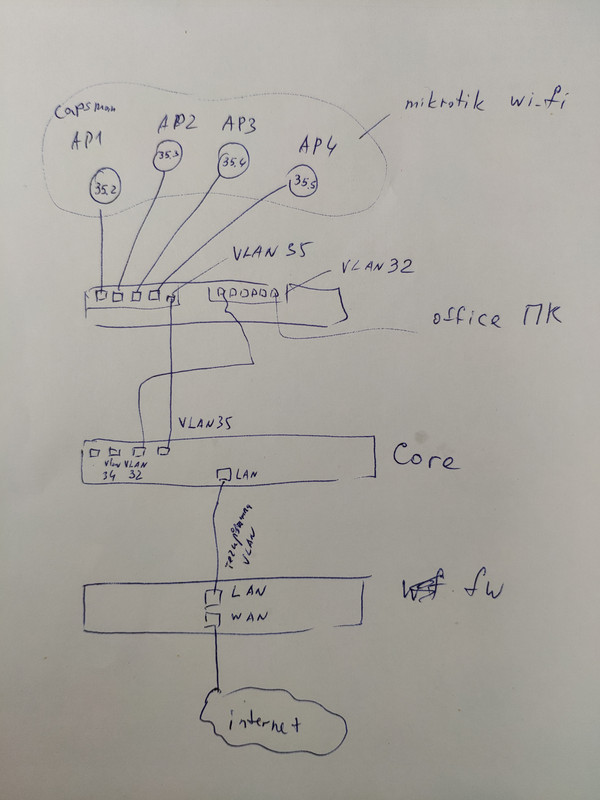 Capsman
mikrotik wi-fi
AP1
AP2
AP3
AP4
35.2
35.3
35.4
35.5
VLAN 35
VLAN 32
office ПК
VLAN35
Vlan
34
VLAN
32
Core
LAN
VLAN
LAN
WAN
fw
internet